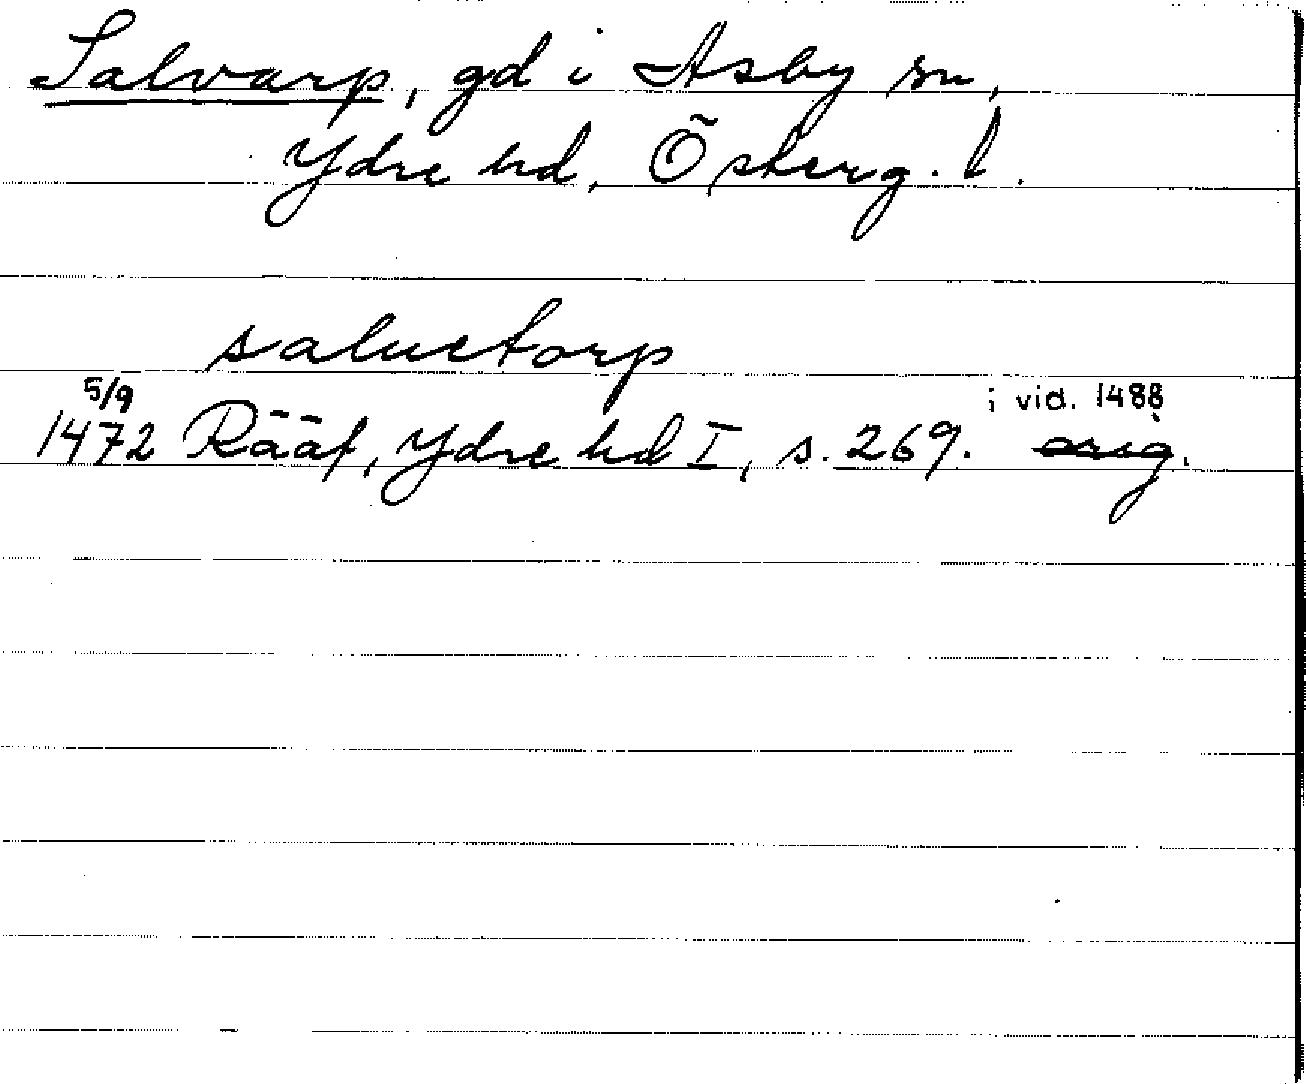 Salvarp, gd i Asby sn,
Ydre hd, Österg. l.
saluetorp
5/9
1472 Rääf, Ydre hd I, s. 269. orig.
i vid. 1488